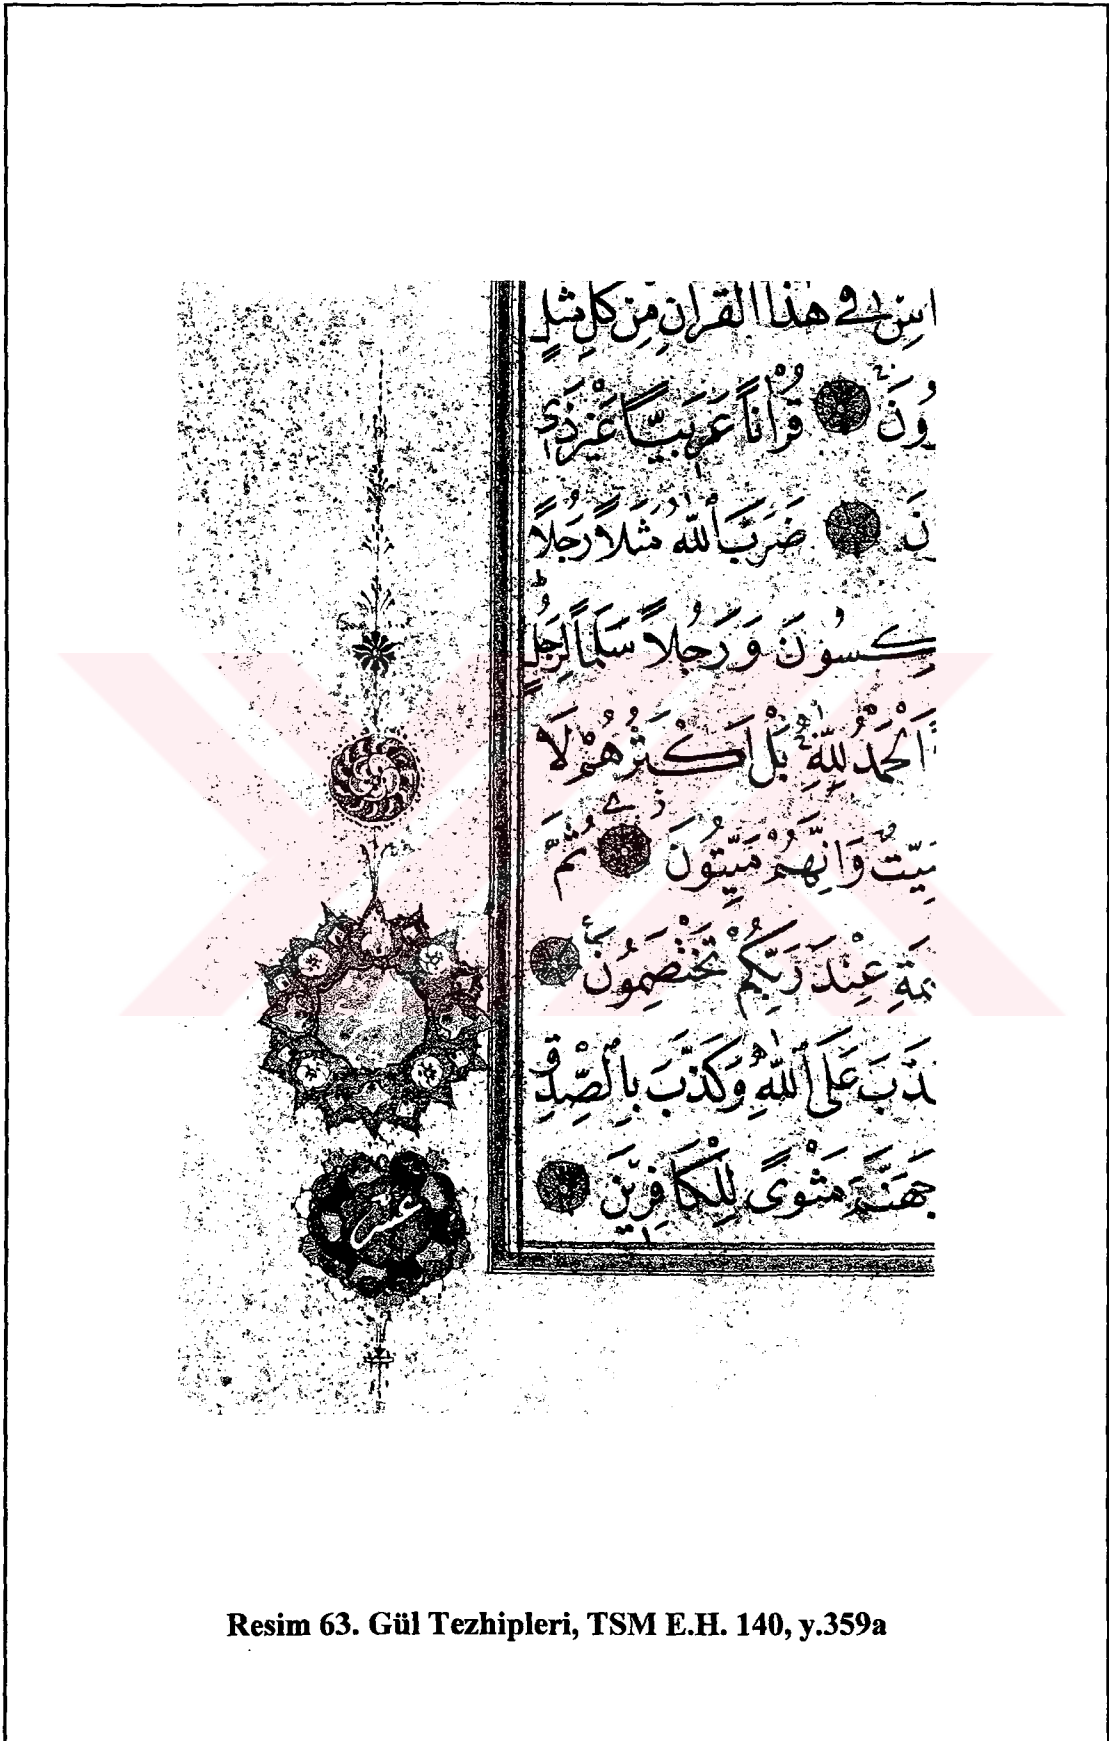 اسِ فِي هٰذَا الْقُرْاٰنِ مِنْ كُلِّ مَثَلٍ
ُونَ قُرْاٰنًا عَرَبِيًّا غَيْرَ ذِي
نَ ضَرَبَ اللّٰهُ مَثَلًا رَجُلًا
كِسُونَ وَرَجُلًا سَلَمًا لِرَجُلٍ
اَلْحَمْدُ لِلّٰهِ بَلْ اَكْثَرُهُمْ لَا
مَيِّتٌ وَاِنَّهُمْ مَيِّتُونَ ثُمَّ
مَةِ عِنْدَ رَبِّكُمْ تَخْتَصِمُونَ
ذَبَ عَلَى اللّٰهِ وَكَذَّبَ بِالصِّدْقِ
جَهَنَّمَ مَثْوًى لِلْكَافِرِينَ
عشر
Resim 63. Gül Tezhipleri, TSM E.H. 140, y.359a